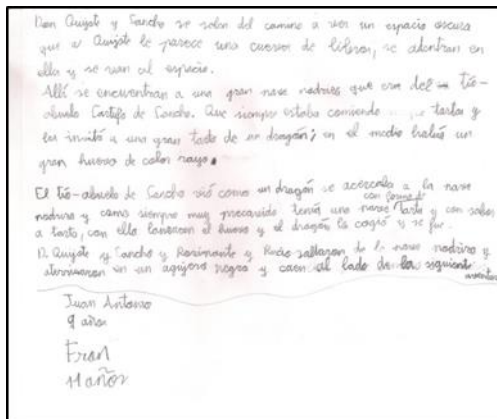 Don Quijote y Sancho se salen del camino a ver un espacio oscuro
que a Quijote le parece una cueva de libros, se adentran en
ella y se van al espacio.
Allí se encuentran a una gran nave nodriza que era del tío-
abuelo de Sancho. Que siempre estaba comiendo tartas y
les invitó a una gran de un dragón; en el medio había un
gran huevo de color rayo.
El tío-abuelo de Sancho vió como un dragón se acercaba a la nave
nodriza y como siempre muy precavido, tenía una nave con forma de Tarta y con sabor
a tarta, con ella lanzaron el huevo y el dragón lo cogió y se fue.
D. Quijote y Sancho y Rocinante y Rucio saltaron de la nave nodriza y
aterrizaron en un agujero negro y caen al lado de la siguiente
aventura
Juan Antonio
9 años
Fran
11 años